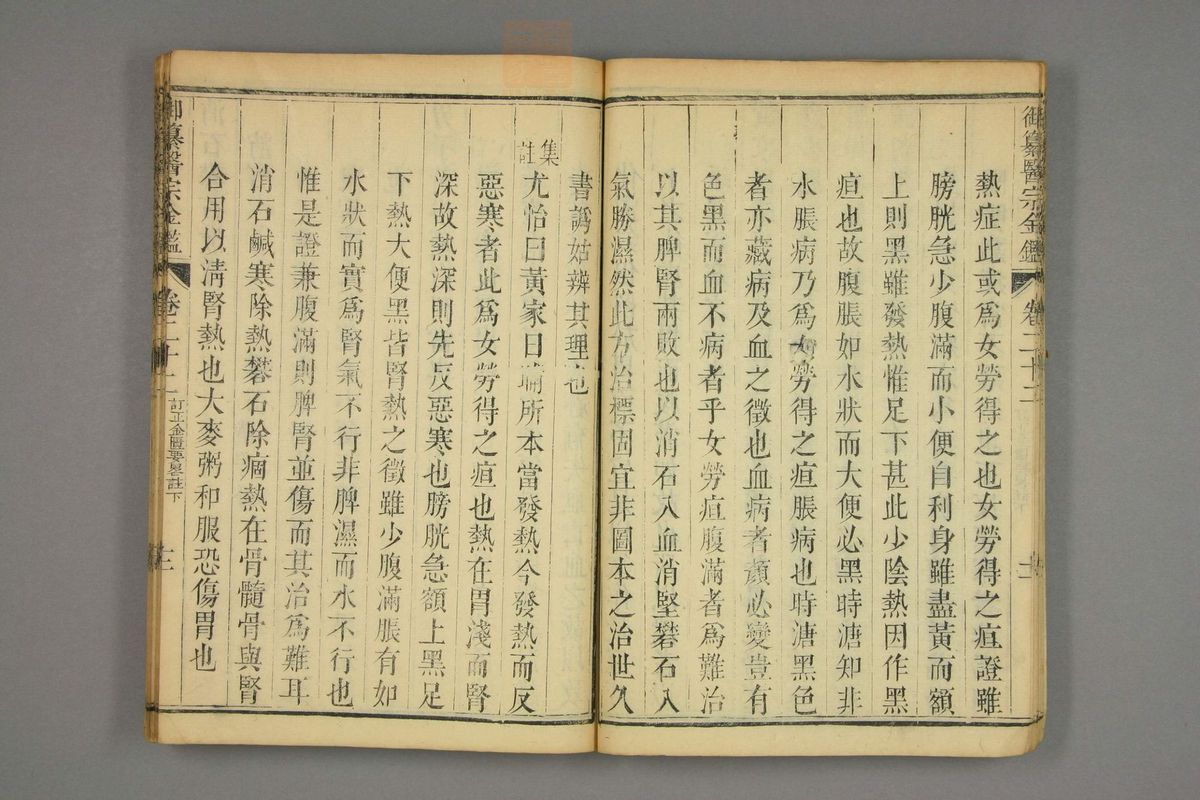 御纂醫宗金鑑 卷二十二
熱症此或爲女勞得之也女勞得之疸證雖
膀胱急少腹滿而小便自利身雖盡黃而額
上則黑雖發熱惟足下甚此少陰熱因作黑
疸也故腹脹如水狀而大便必黑時溏知非
水脹病乃爲女勞得之疸脹病也時溏黑色
者亦藏病及血之徵也血病者顏必變豈有
色黑而血不病者乎女勞疸腹滿者爲難治
以其脾腎兩敗也以消石入血消堅礬石入
氣勝濕然此方治標固宜非圖本之治世久
書譌姑辨其理也
集註
尤怡曰黃家日晡所本當發熱今發熱而反
惡寒者此爲女勞得之疸也熱在胃淺而腎
深故熱深則先反惡寒也膀胱急額上黑足
下熱大便黑皆腎熱之徵雖少腹滿脹有如
水狀而實爲腎氣不行非脾濕而水不行也
惟是證兼腹滿則脾腎並傷而其治爲難耳
消石鹹寒除熱礬石除痼熱在骨髓骨與腎
合用以清腎熱也大麥粥和服恐傷胃也
御纂醫宗金鑑 卷二十二 訂正金匱要畧註下